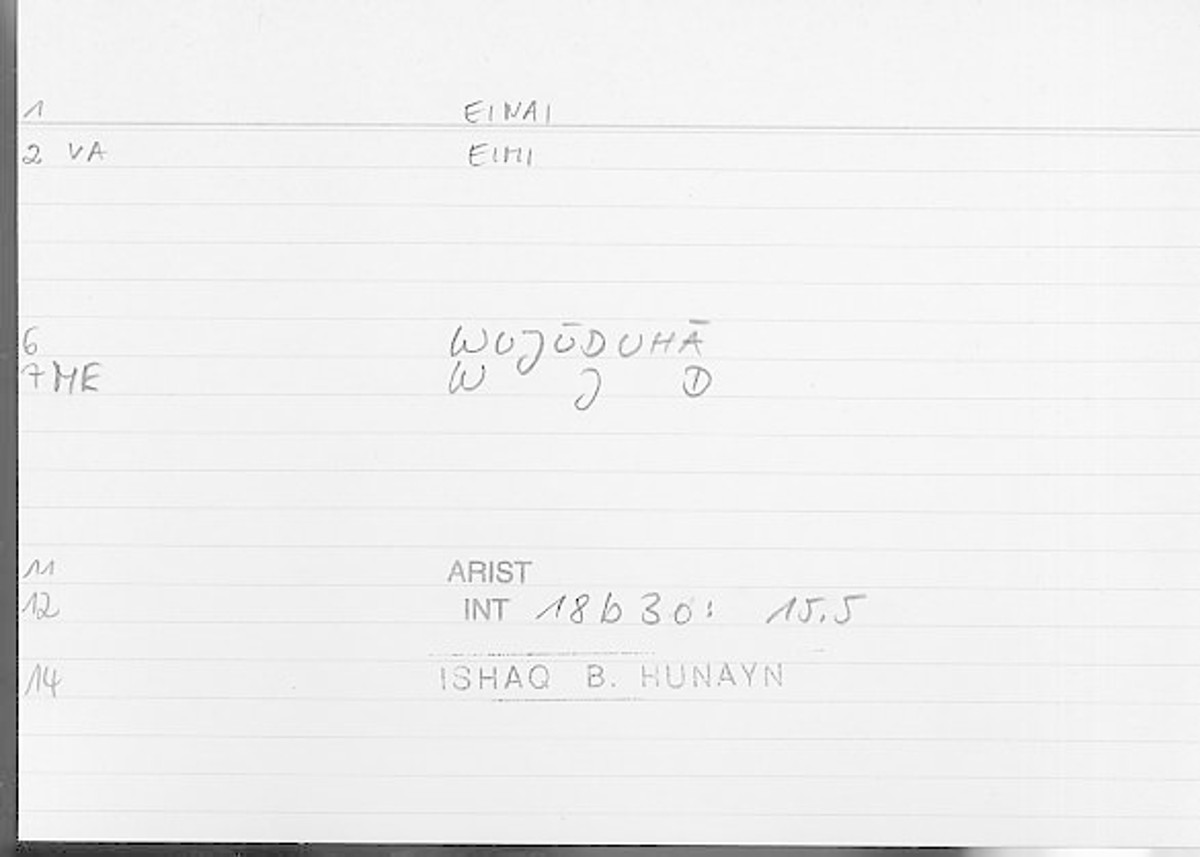 1 EINAI
2 VA EIMI
6 WUJŪDUHĀ
7 ME W J D
11 ARIST
12 INT 18b30: 15.5
14 ISHAQ B. HUNAYN